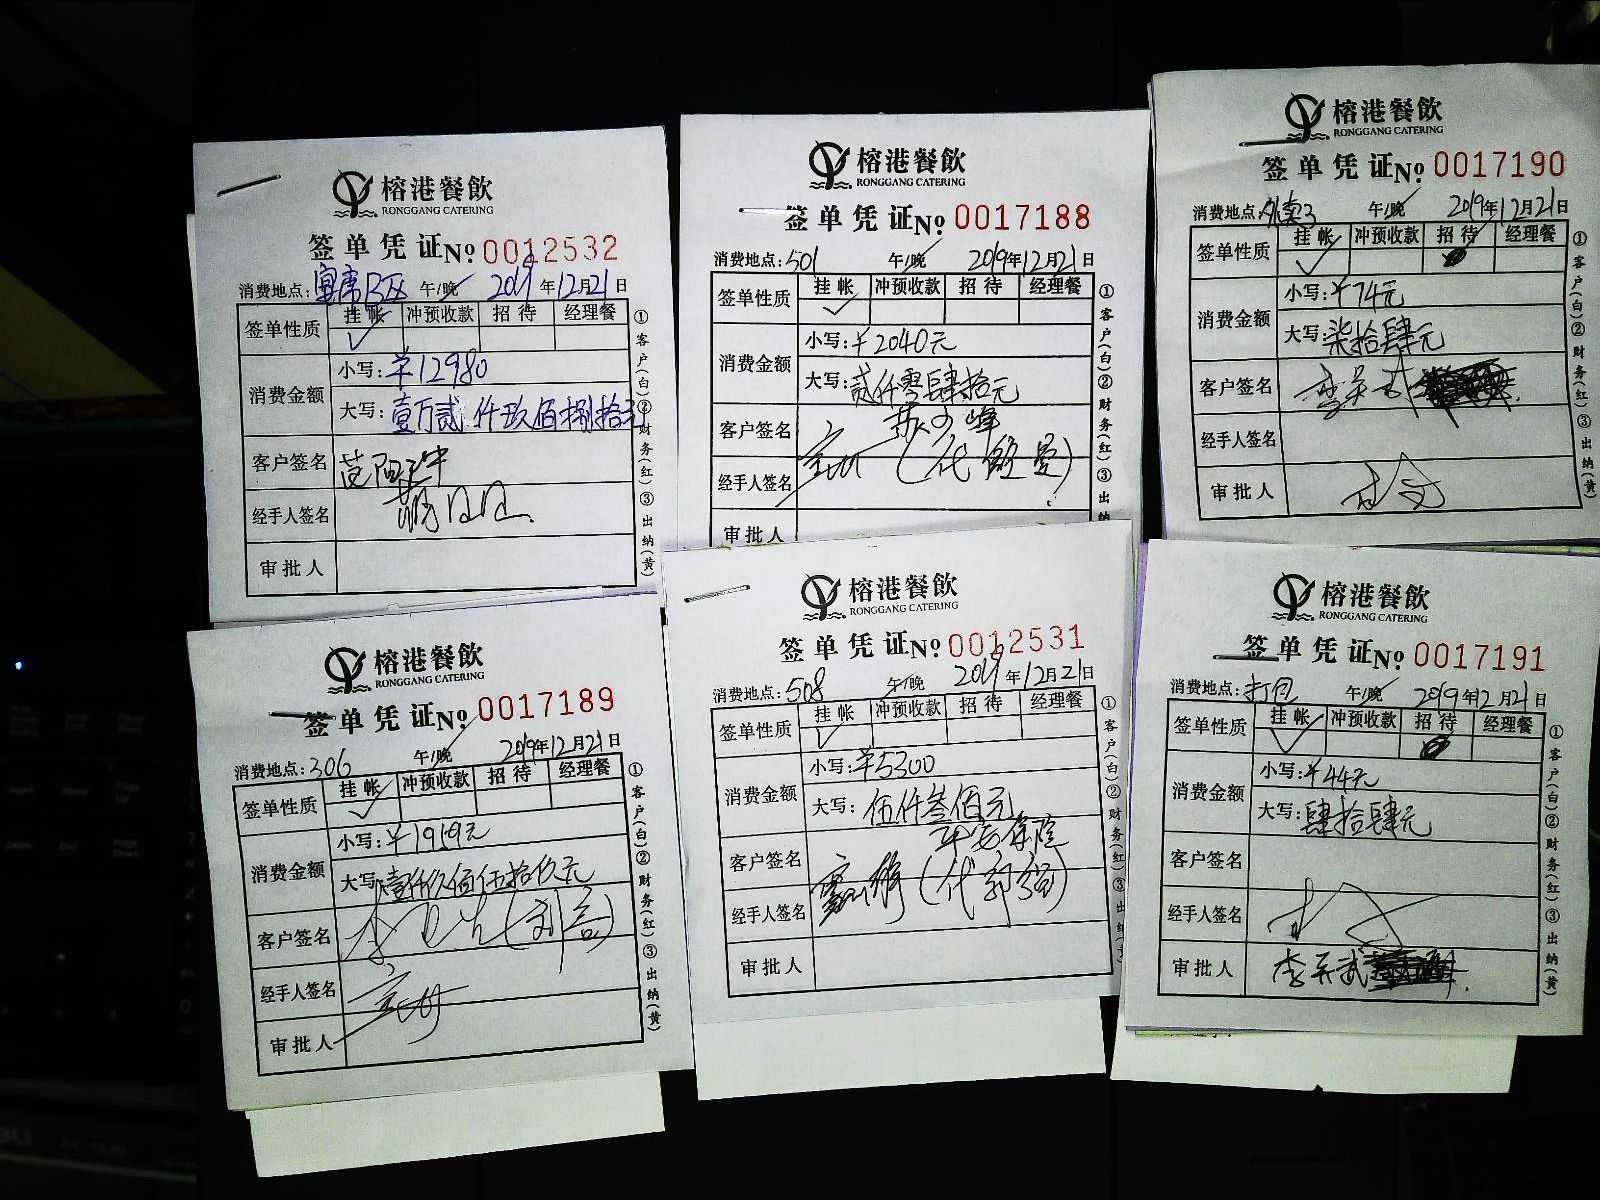 榕港餐飲
RONGGANG CATERING
签单凭证No 0012532
消费地点:宴席B区 午/晚 2019年12月21日
签单性质 挂帐 冲预收款 招待 经理餐
✓
消费金额 小写:¥12980
大写:壹万贰仟玖佰捌拾元
客户签名
经手人签名
审批人
①客户(白)②财务(红)③出纳(黄)
榕港餐飲
RONGGANG CATERING
签单凭证No 0017188
消费地点:501 午/晚 2019年12月21日
签单性质 挂帐 冲预收款 招待 经理餐
✓
消费金额 小写:¥2040元
大写:贰仟零肆拾元
客户签名
经手人签名
审批人
①客户(白)②财务(红)③出纳
榕港餐飲
RONGGANG CATERING
签单凭证No 0017190
消费地点:外卖3 午/晚 2019年12月21日
签单性质 挂帐 冲预收款 招待 经理餐
✓
消费金额 小写:¥74元
大写:柒拾肆元
客户签名
经手人签名
审批人
①客户(白)②财务(红)③出纳(黄)
榕港餐飲
RONGGANG CATERING
签单凭证No 0017189
消费地点:306 午/晚 2019年12月21日
签单性质 挂帐 冲预收款 招待 经理餐
✓
消费金额 小写:¥1959元
大写:壹仟玖佰伍拾玖元
客户签名
经手人签名
审批人
①客户(白)②财务(红)③出纳(黄)
榕港餐飲
RONGGANG CATERING
签单凭证No 0012531
消费地点:508 午/晚 2019年12月21日
签单性质 挂帐 冲预收款 招待 经理餐
✓
消费金额 小写:¥5300
大写:伍仟叁佰元
客户签名 平安保险
经手人签名
审批人
①客户(白)②财务(红)③出纳(黄)
榕港餐飲
RONGGANG CATERING
签单凭证No 0017191
消费地点:打包 午/晚 2019年12月21日
签单性质 挂帐 冲预收款 招待 经理餐
✓
消费金额 小写:¥44元
大写:肆拾肆元
客户签名
经手人签名
审批人
①客户(白)②财务(红)③出纳(黄)